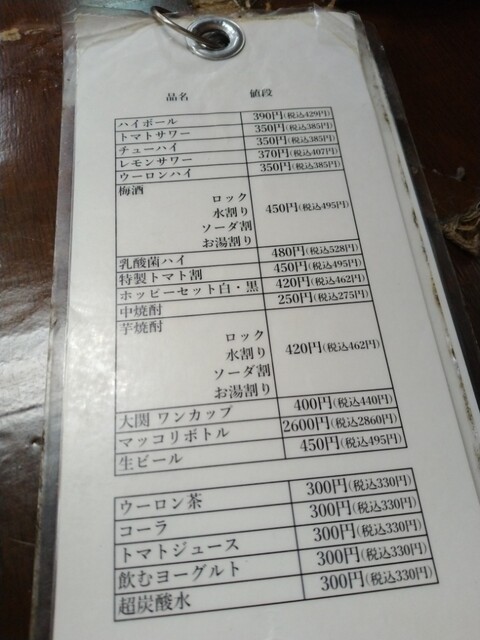 品名 値段
ハイボール 390円(税込429円)
トマトサワー 350円(税込385円)
チューハイ 350円(税込385円)
レモンサワー 370円(税込407円)
ウーロンハイ 350円(税込385円)
梅酒
ロック
水割り
ソーダ割
お湯割り
450円(税込495円)
乳酸菌ハイ 480円(税込528円)
特製トマト割 450円(税込495円)
ホッピーセット白・黒 420円(税込462円)
中焼酎 250円(税込275円)
芋焼酎
ロック
水割り
ソーダ割
お湯割り
420円(税込462円)
大関 ワンカップ 400円(税込440円)
マッコリボトル 2600円(税込2860円)
生ビール 450円(税込495円)
ウーロン茶 300円(税込330円)
コーラ 300円(税込330円)
トマトジュース 300円(税込330円)
飲むヨーグルト 300円(税込330円)
超炭酸水 300円(税込330円)